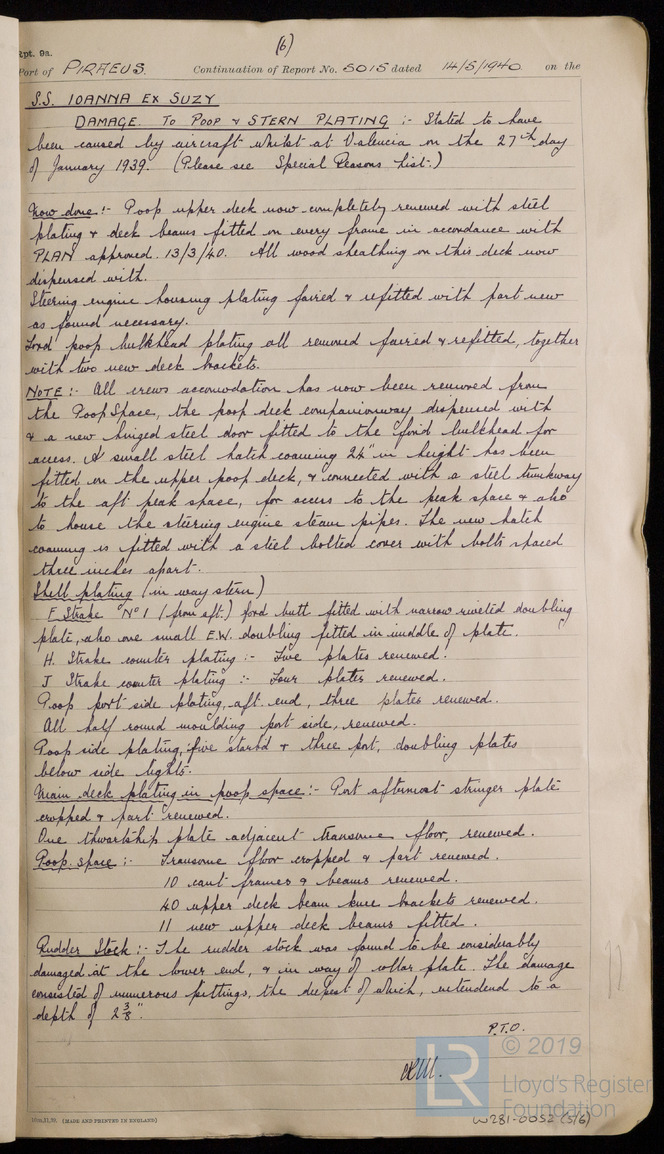 (6)
Rpt. 9a.
Port of PIRAEUS. Continuation of Report No. 5015 dated 14/5/1940 on the
S.S. IOANNA EX SUZY
DAMAGE TO POOP & STERN PLATING :- Stated to have
been caused by aircraft whilst at Valencia on the 27th day
of January 1939. (Please see Special Reasons List.)
Now done :- Poop upper deck now completely renewed with steel
plating & deck beams fitted on every frame in accordance with
PLAN approved. 13/3/40. All wood sheathing on this deck now
dispensed with.
Steering engine housing plating faired & refitted with part new
as found necessary.
Ford poop bulkhead plating all removed faired & refitted, together
with two new deck brackets.
NOTE :- All crews accomodation has now been removed from
the Poop Space, the poop deck companionway dispensed with
& a new hinged steel door fitted to the ford bulkhead for
access. A small steel hatch coaming 24" in height has been
fitted on the upper poop deck, & connected with a steel trunkway
to the aft peak space, for access to the peak space & also
to house the steering engine steam pipes. The new hatch
coaming is fitted with a steel bolted cover with bolts spaced
three inches apart.
Shell plating (in way stern)
F Strake No 1 (from aft.) ford butt fitted with narrow riveted doubling
plate, also one small E.W. doubling fitted in middle of plate.
H. Strake counter plating :- Five plates renewed.
J Strake counter plating :- Four plates renewed.
Poop port side plating, aft. end, three plates renewed.
All half round moulding port side, renewed.
Poop side plating, five starbd & three port, doubling plates
below side lights.
Main deck plating in poop space :- Port aftermost stringer plate
cropped & part renewed.
One thwartship plate adjacent transome floor, renewed.
Poop space :- Transome floor cropped & part renewed.
10 cant frames & beams renewed.
40 upper deck beam knee brackets renewed.
11 new upper deck beams fitted.
Rudder Stock :- The rudder stock was found to be considerably
damaged at the lower end, & in way of collar plate. The damage
consisted of numerous pittings, the deepest of which, extended to a
depth of 2 3/8".
P.T.O.
LR © 2019
Lloyd's Register
Foundation
(MADE AND PRINTED IN ENGLAND)
W281-0052 (5/6)